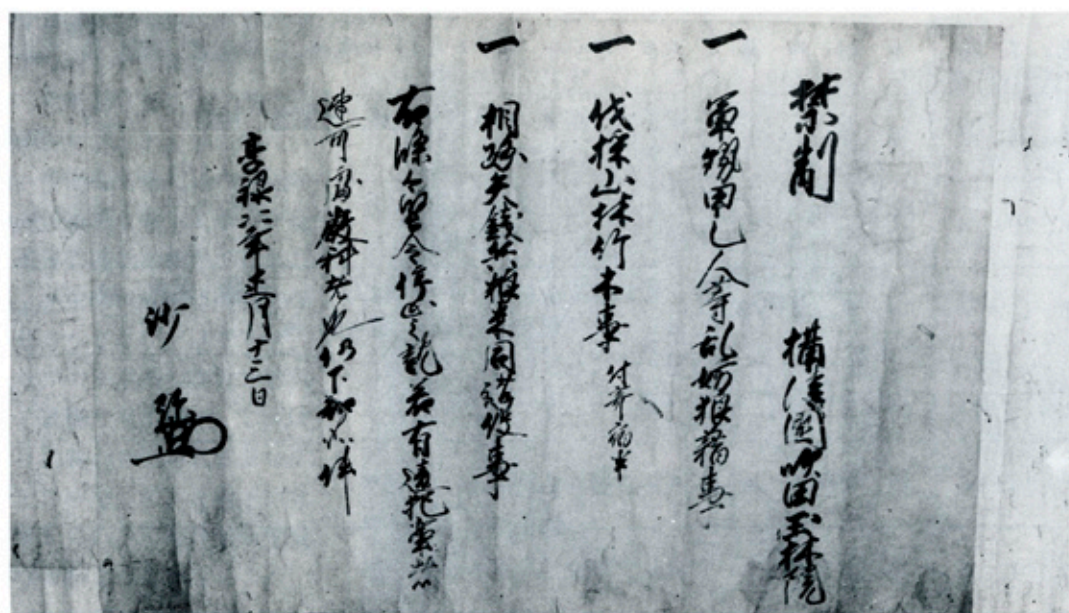 禁制 摂津国吹田玉林院
一 軍勢甲乙人等乱妨狼藉事
一 伐採山林竹木事 付寄宿事
一 相懸矢銭兵粮米同諸役事
右條々堅令停止之訖若有違犯輩者
速可處嚴科者也仍下知如件
享禄二年十二月十三日
沙弥